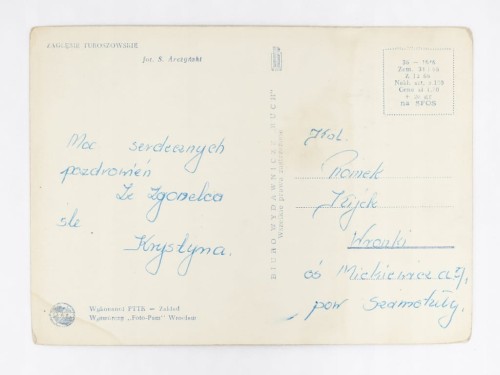 ZAGŁĘBIE TUROSZOWSKIE
fot. S. Arczyński
Moc serdecznych
pozdrowień
Ze Zgorzelca
śle
Krystyna.
Wykonawca PTTK — Zakład
Wytwórczy „Foto-Pam" Wrocław
BIURO WYDAWNICZE „RUCH"
Wszelkie prawa zastrzeżone
Cena zł
+ gr
na SFOS
Romek
Wronki
oś Mickiewicza
pow Szamotuły.